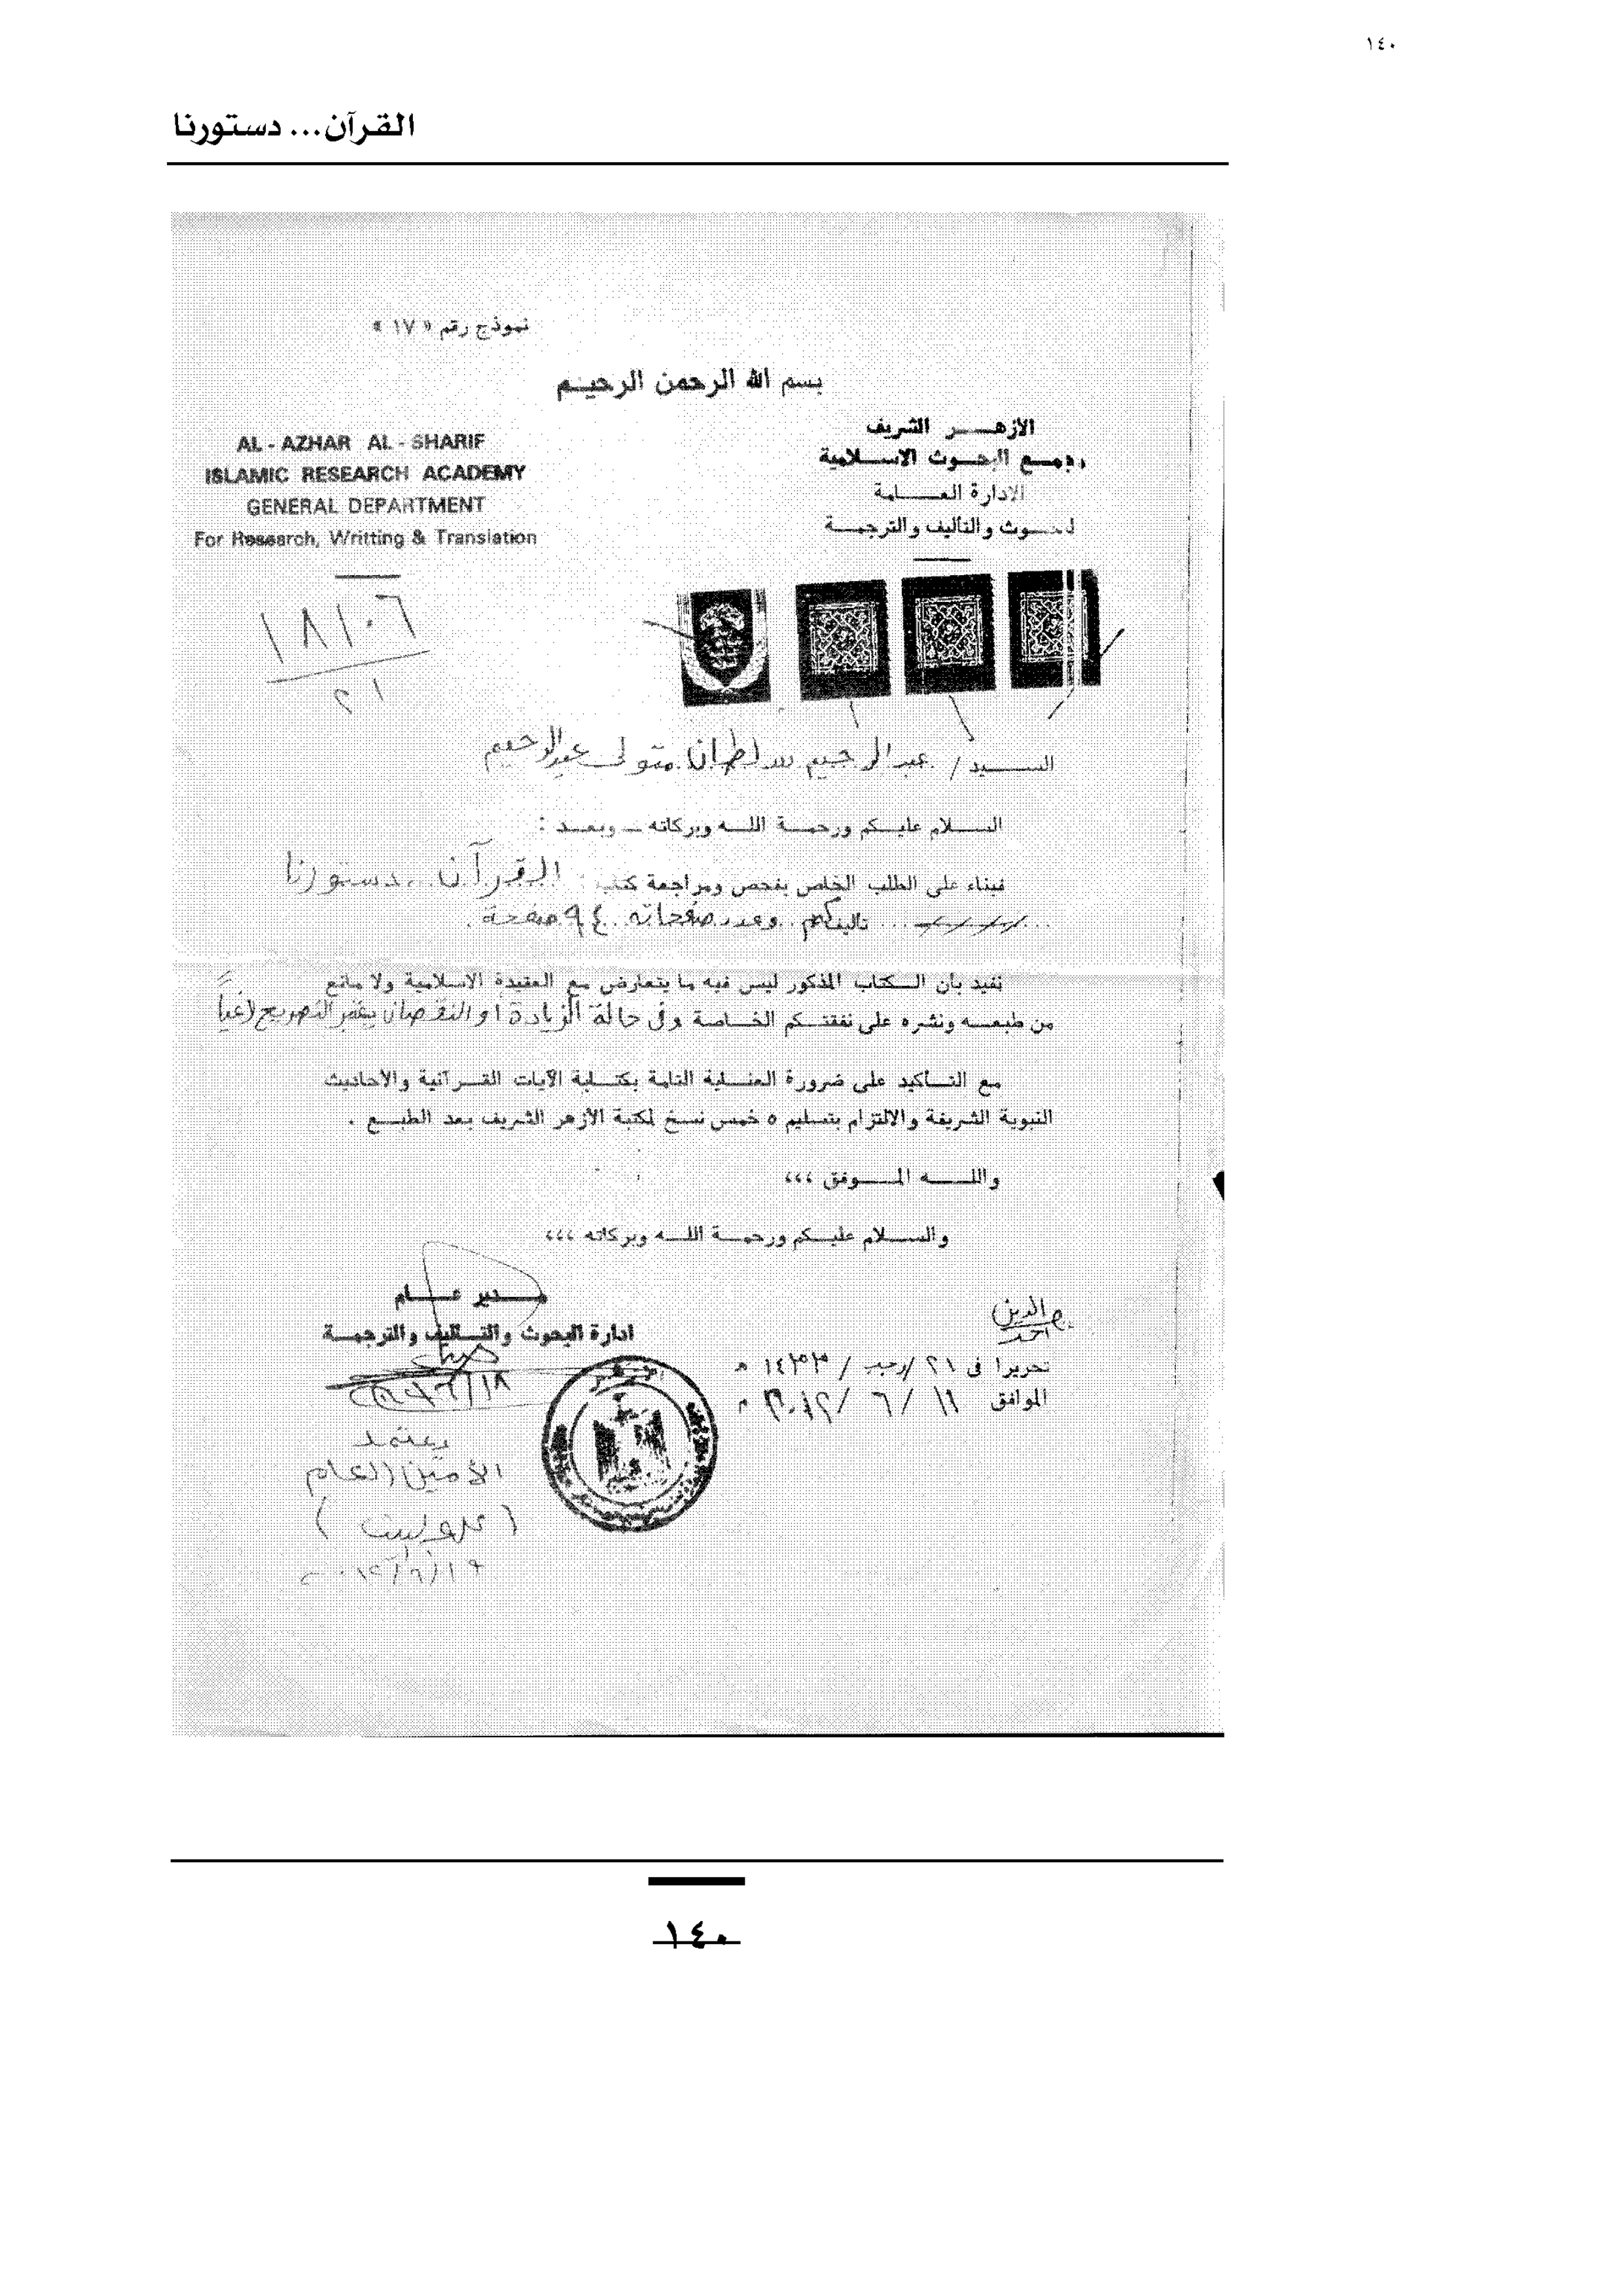 ١٤٠
القرآن... دستورنا
نموذج رقم « ١٧ »
بسم الله الرحمن الرحيم
الازهر الشريف
مجمع البحوث الاسلامية
الادارة العامة
للبحوث والتأليف والترجمة
AL - AZHAR AL - SHARIF
ISLAMIC RESEARCH ACADEMY
GENERAL DEPARTMENT
For Research, Writting & Translation
السيد / عبد الرحيم سلطان متولى عبد الرحيم
السلام عليكم ورحمة الله وبركاته ــ وبعد :
فبناء على الطلب الخاص بفحص ومراجعة كتاب : القرآن .. دستورنا
تأليفكم .. وعدد صفحاته .. ٩٤ صفحة .
نفيد بأن الكتاب المذكور ليس فيه ما يتعارض مع العقيدة الاسلامية ولا مانع
من طبعه ونشره على نفقتكم الخاصة وفى حالة الزيادة أو النقصان يعتبر التصريح لاغياً
مع التأكيد على ضرورة العناية التامة بكتابة الآيات القرآنية والأحاديث
النبوية الشريفة والالتزام بتسليم ٥ خمس نسخ لمكتبة الأزهر الشريف بعد الطبع .
والله الموفق ،،،
والسلام عليكم ورحمة الله وبركاته ،،،
مدير عام
ادارة البحوث والتأليف والترجمة
تحريرا فى ٢١ / رجب / ١٤٣٣ هـ
الموافق ١١ / ٦ / ٢٠١٢ م
يعتمد
الأمين العام
٢٠١٢/٦/١٩
١٤٠